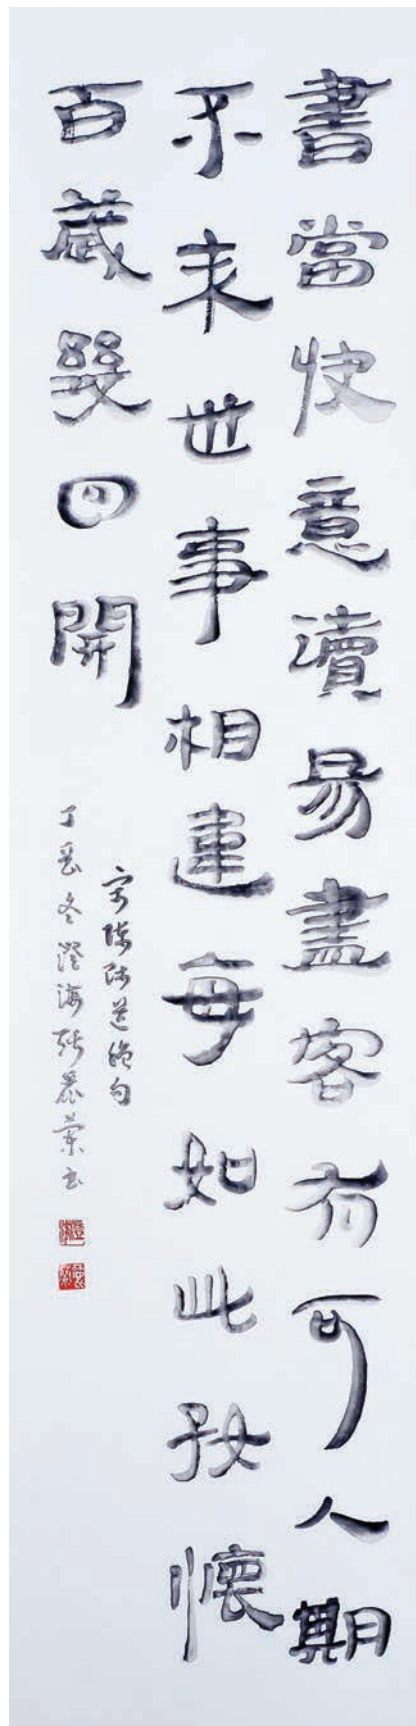 書當快意讀易盡客有可人期
不來世事相違每如此好懷
百歲幾回開
宋陳師道絕句
丁亥冬澄海書